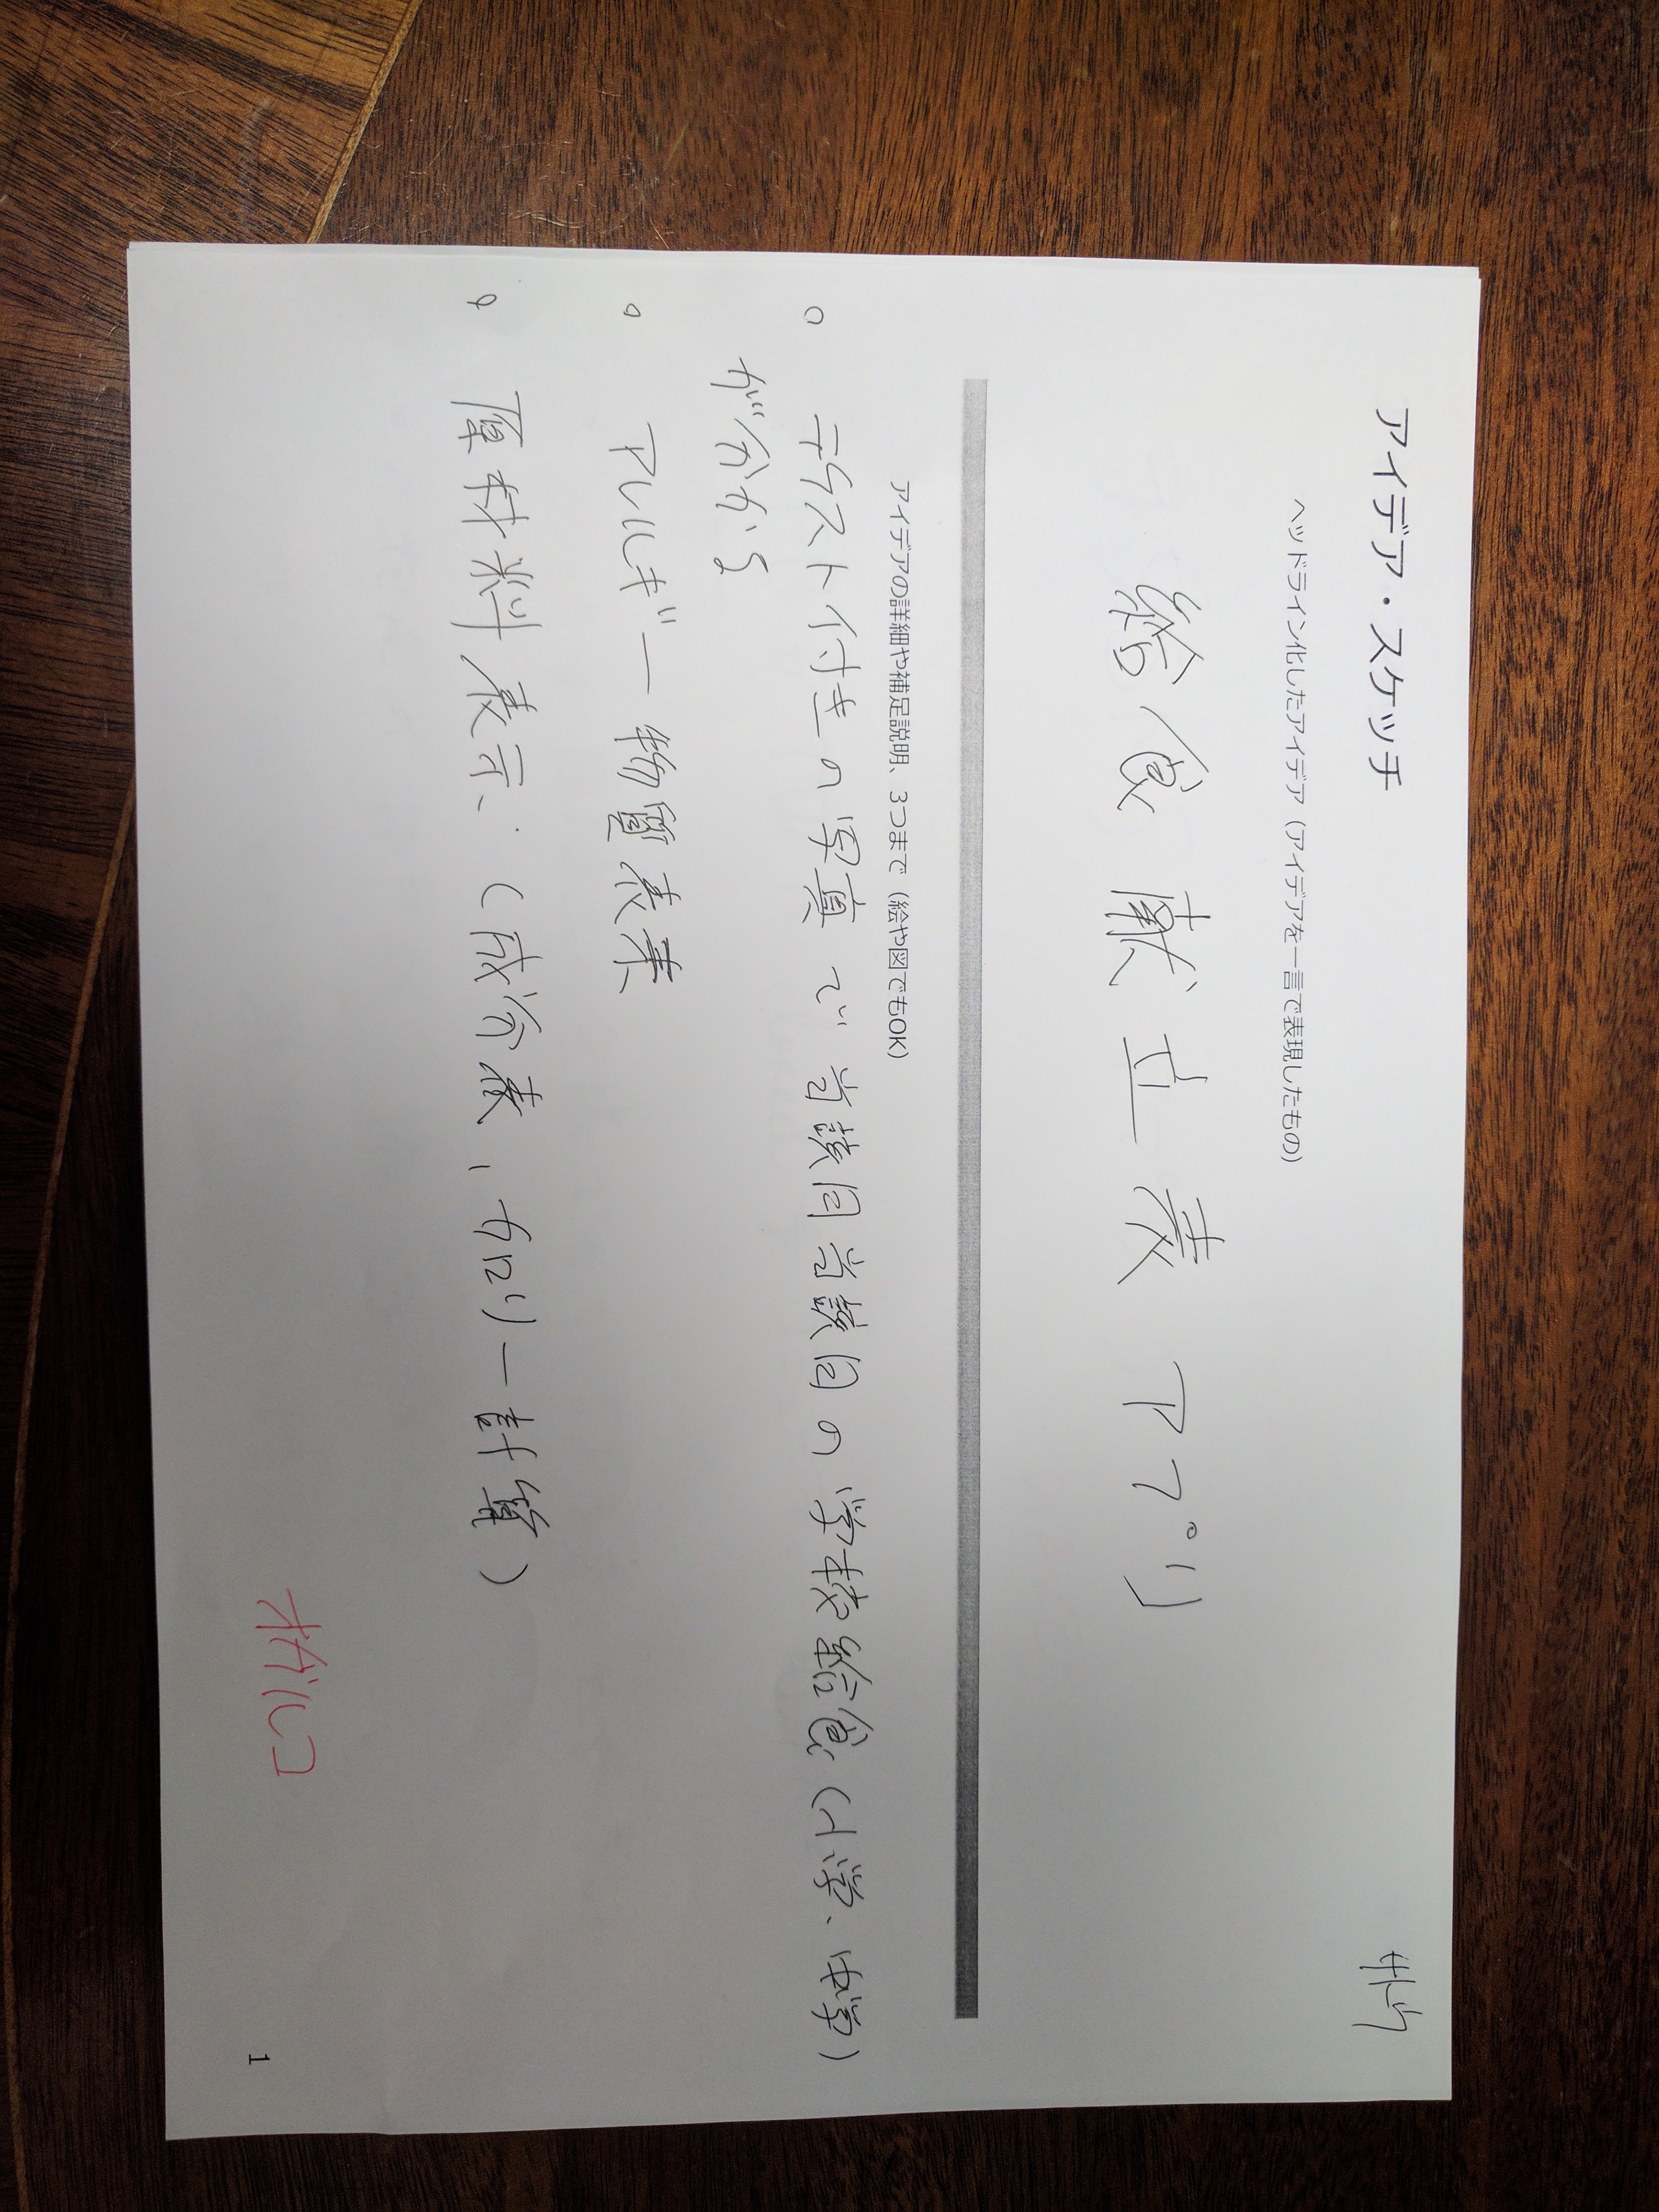 アイデア・スケッチ
ヘッドライン化したアイデア（アイデアを一言で表現したもの）
給食献立表アプリ
アイデアの詳細や補足説明、3つまで（絵や図でもOK）
○ テキスト付きの写真で当該月当該日の学校給食（小学、中学）
が分かる
○ アルギー物質表示
○ 原材料表示、（成分表、カロリー計算）
オガルコ
1